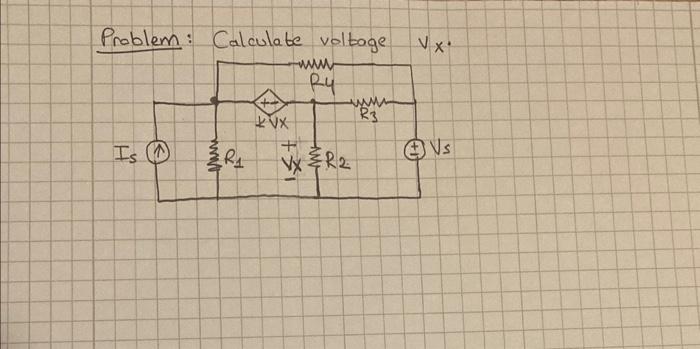 Problem: Calculate voltage Vx.
R4
+-
kVx
R3
Is
R1
+
Vx
-
R2
+
-
Vs